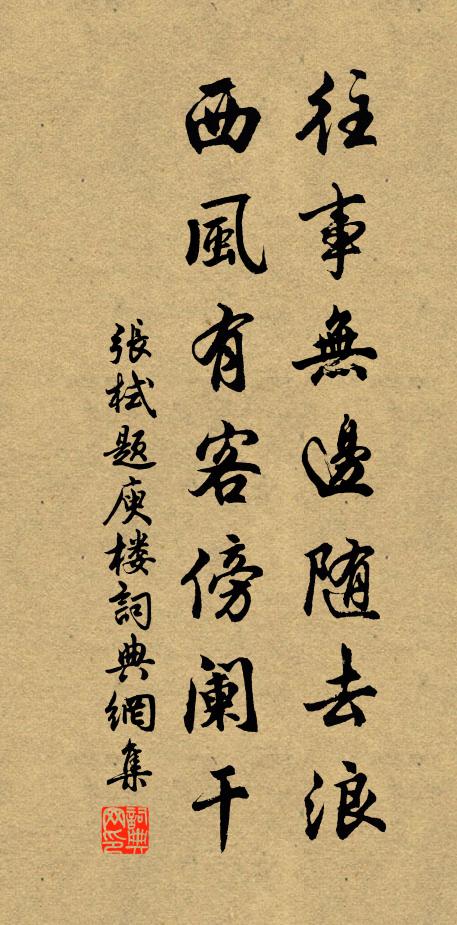 往事無邊随去浪
西風有客傍阑干
張栻题庾楼詞典網集
詞典网印